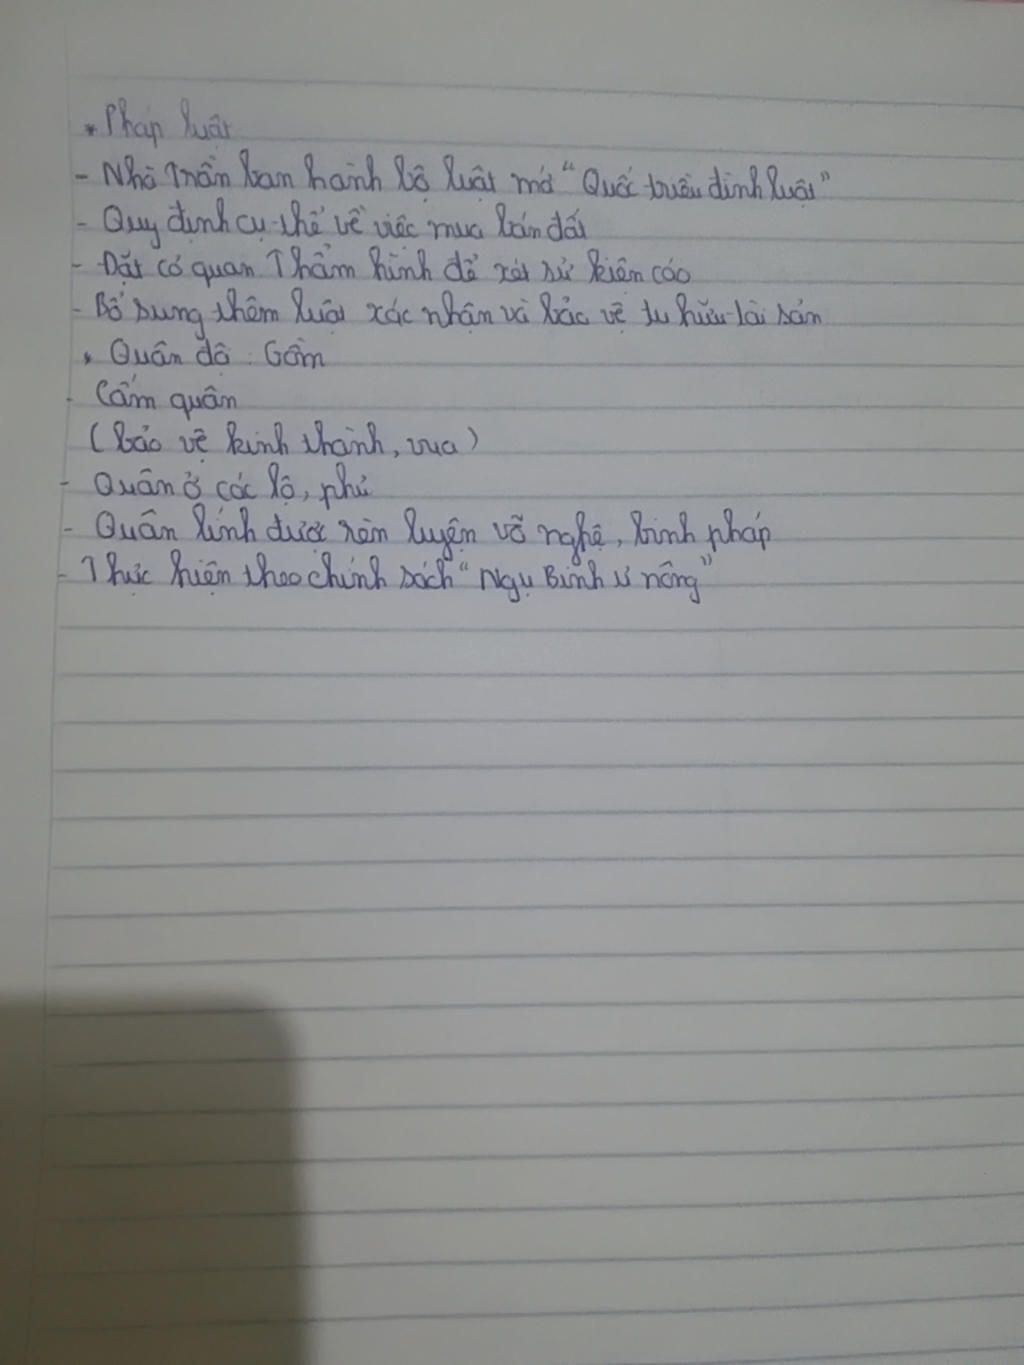 * Pháp luật
- Nhà Trần ban hành bộ luật mới "Quốc triều đình luật"
- Quy định cụ thể về việc mua bán đất
- Đặt cơ quan Thẩm hình để xét xử kiện cáo
- Bổ sung thêm luật xác nhận và bảo vệ tư hữu tài sản
* Quân đội: Gồm
- Cấm quân
(bảo vệ kinh thành, vua)
- Quân ở các lộ, phủ
- Quân lính được rèn luyện võ nghệ, binh pháp
- Thực hiện theo chính sách "Ngụ Binh ư nông"